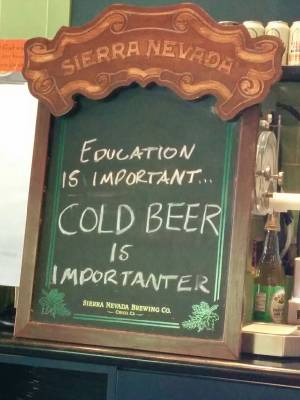 SIERRA NEVADA
EDUCATION
IS IMPORTANT...
COLD BEER
IS
IMPORTANTER
SIERRA NEVADA BREWING CO.
CHICO, CA